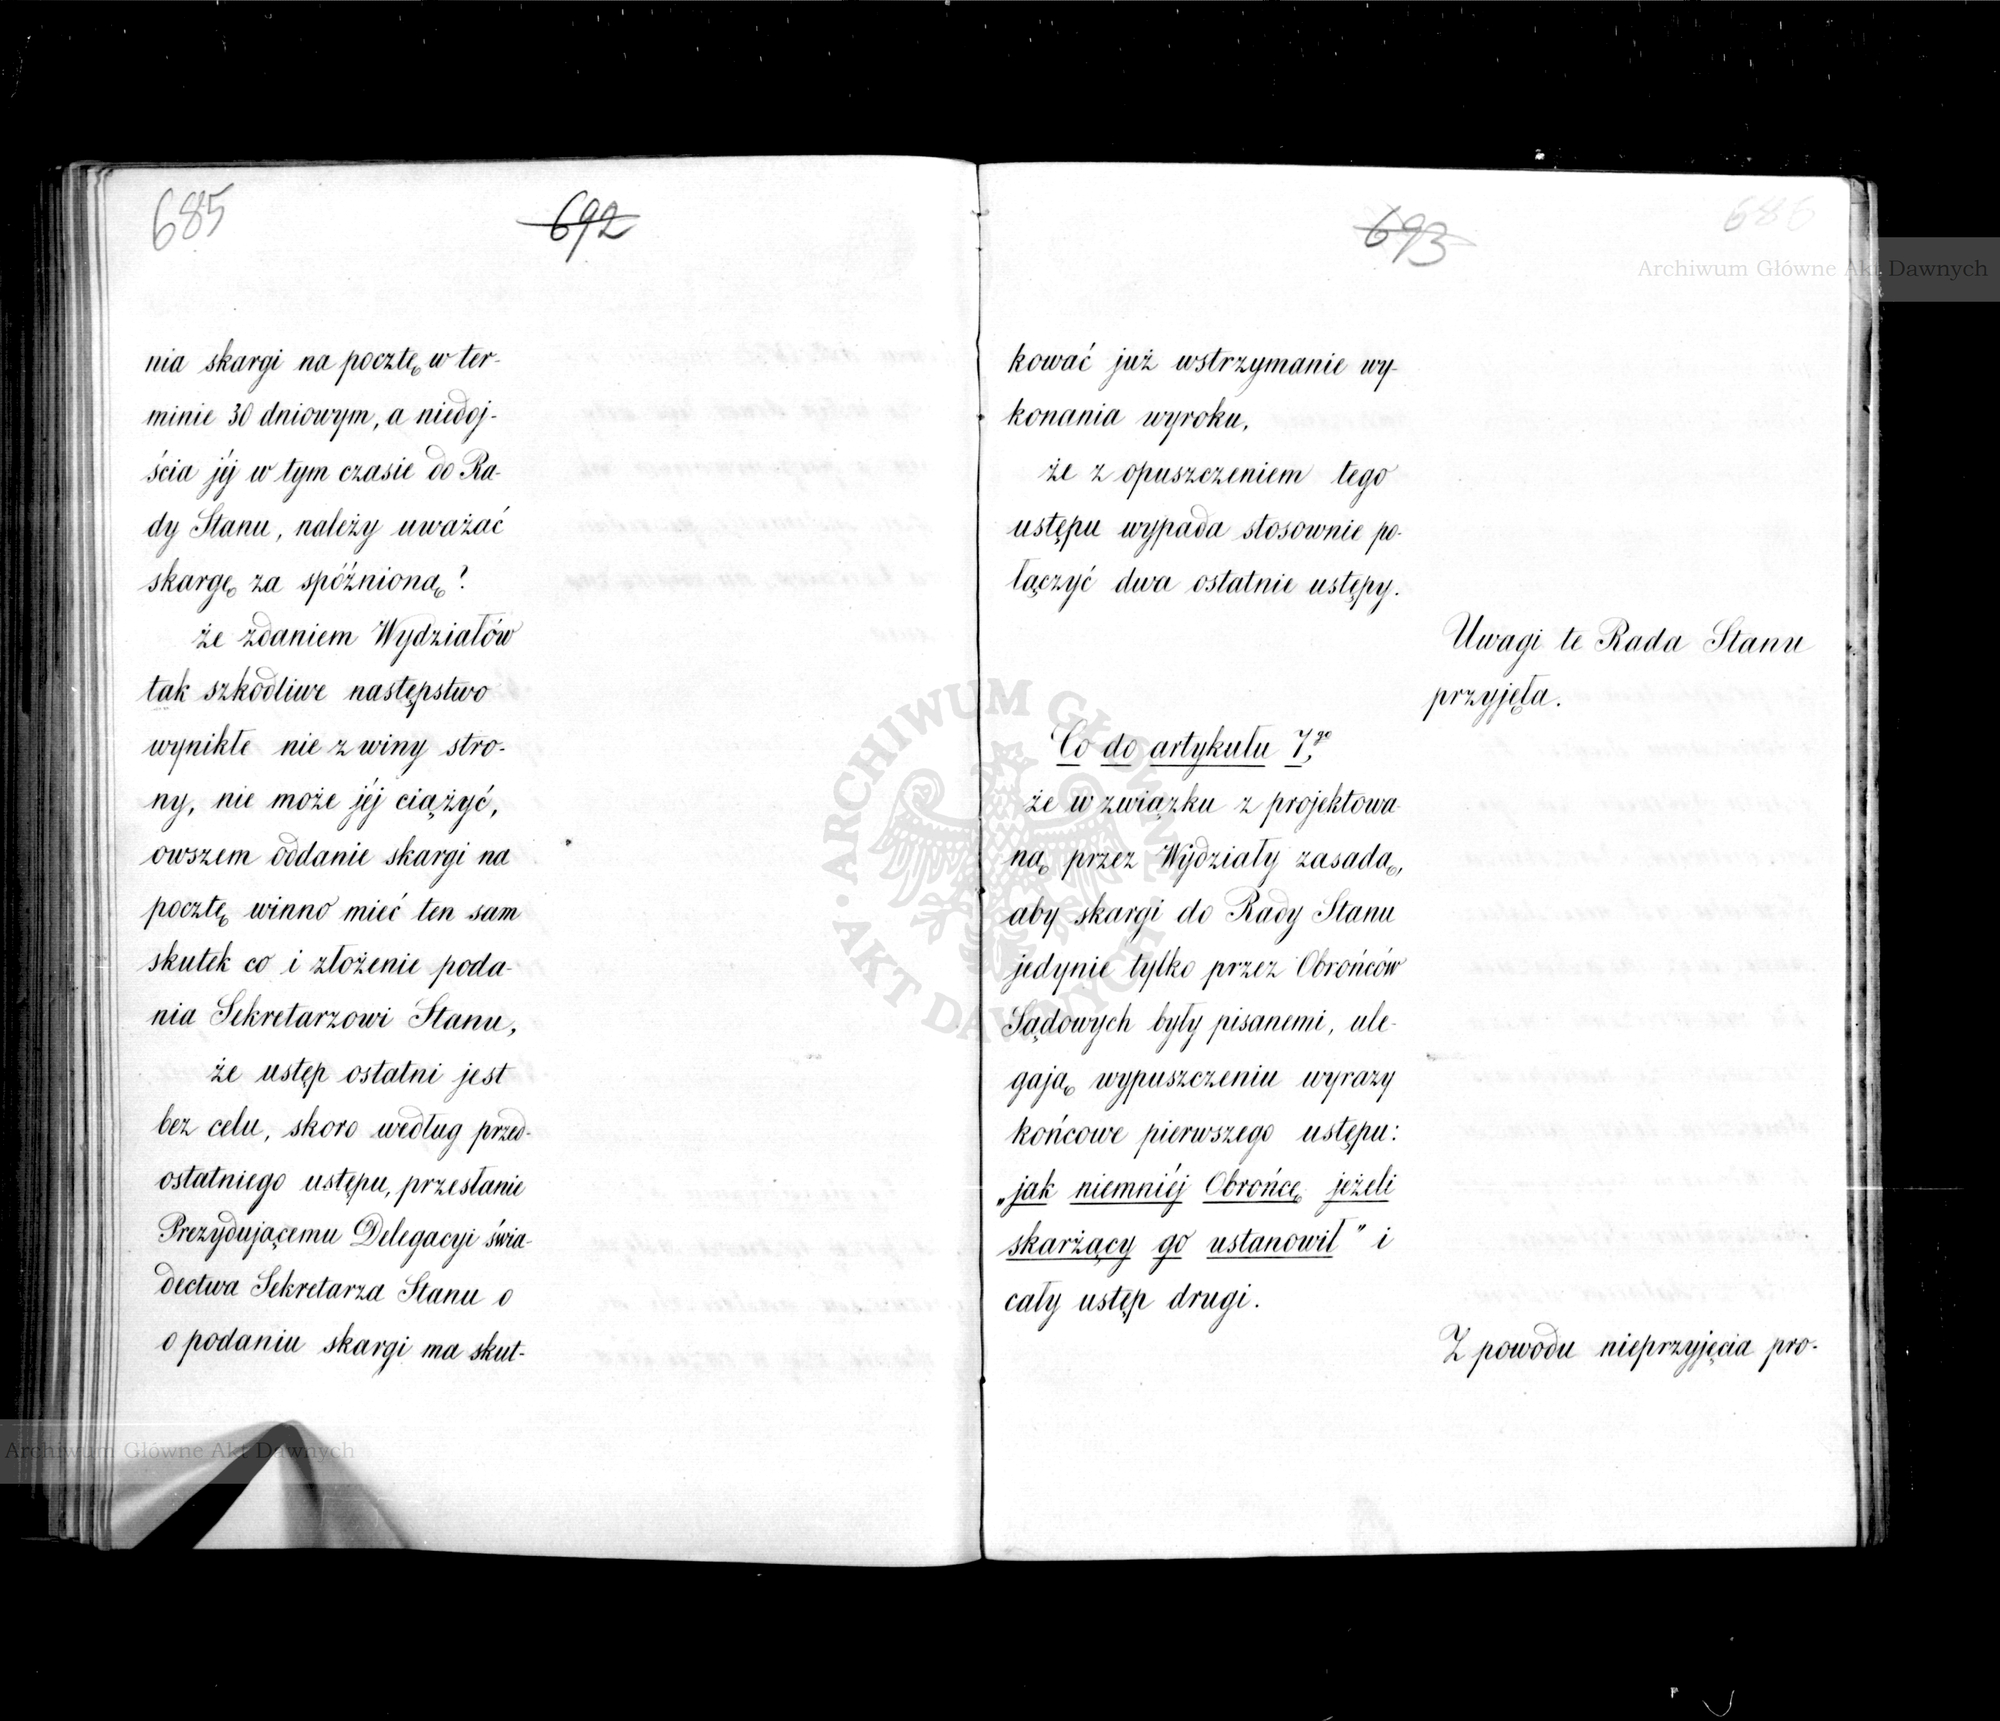 685
692
nia skargi na pocztę w ter-
minie 30 dniowym, a niedoj-
ścia jéj w tym czasie do Ra-
dy Stanu, należy uważać
skargę za spóźnioną?
że zdaniem Wydziałów
tak szkodliwe następstwo
wynikłe nie z winy stro-
ny, nie może jéj ciążyć,
owszem oddanie skargi na
pocztę winno mieć ten sam
skutek co i złożenie poda-
nia Sekretarzowi Stanu,
że ustęp ostatni jest
bez celu, skoro według przed-
ostatniego ustępu, przesłanie
Prezydującemu Delegacyi świa-
dectwa Sekretarza Stanu o
o podaniu skargi ma skut-
Archiwum Główne Akt Dawnych
693
686
Archiwum Główne Akt Dawnych
kować już wstrzymanie wy-
konania wyroku,
że z opuszczeniem tego
ustępu wypada stosownie po-
łączyć dwa ostatnie ustępy.
Uwagi te Rada Stanu
przyjęła.
Co do artykułu 7go
że w związku z projektowa-
ną przez Wydziały zasadą,
aby skargi do Rady Stanu
jedynie tylko przez Obrońców
Sądowych były pisanemi, ule-
gają wypuszczeniu wyrazy
końcowe pierwszego ustępu:
„jak niemniéj Obrońcę jeżeli
skarżący go ustanowił" i
cały ustęp drugi.
Z powodu nieprzyjęcia pro-
ARCHIWUM GŁÓWNE AKT DAWNYCH